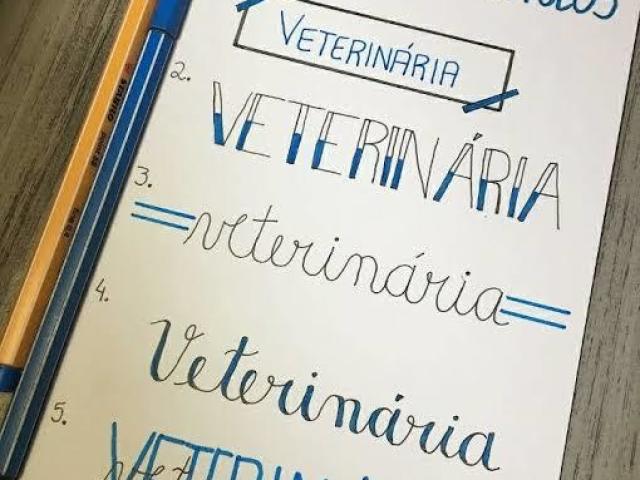 VETERINÁRIA
2. VETERINÁRIA
3. veterinária
4. Veterinária
5.
STABILO